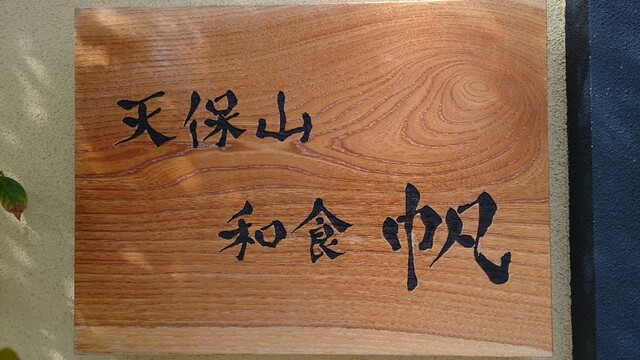 天保山
和食 帆